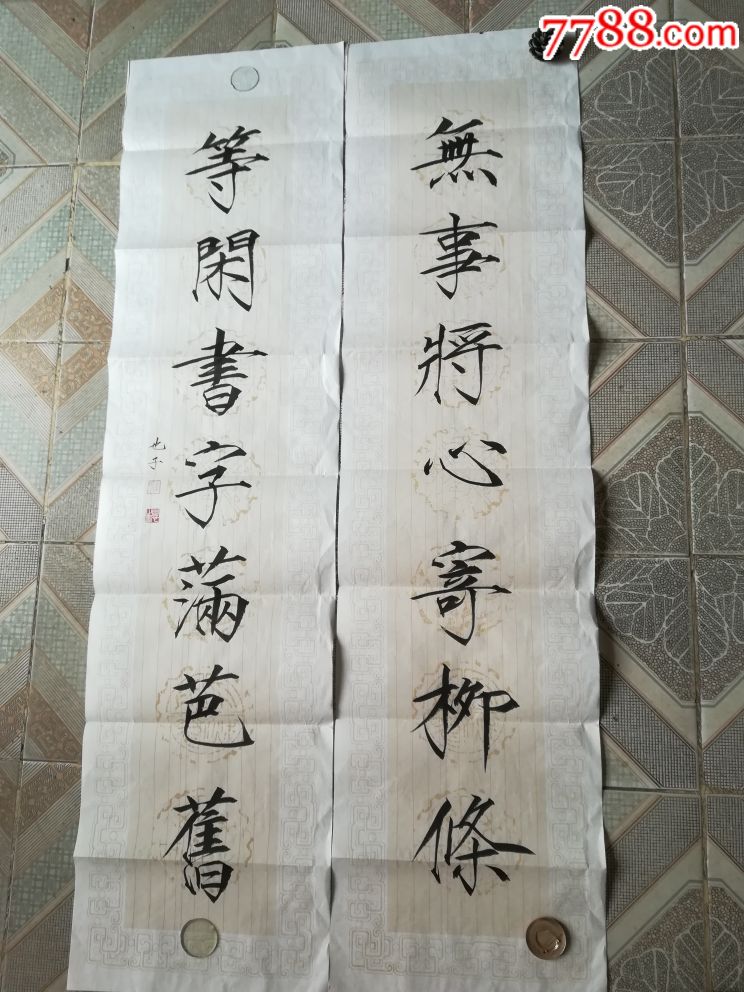 7788.com
無事將心寄柳條
等閑書字滿芭舊